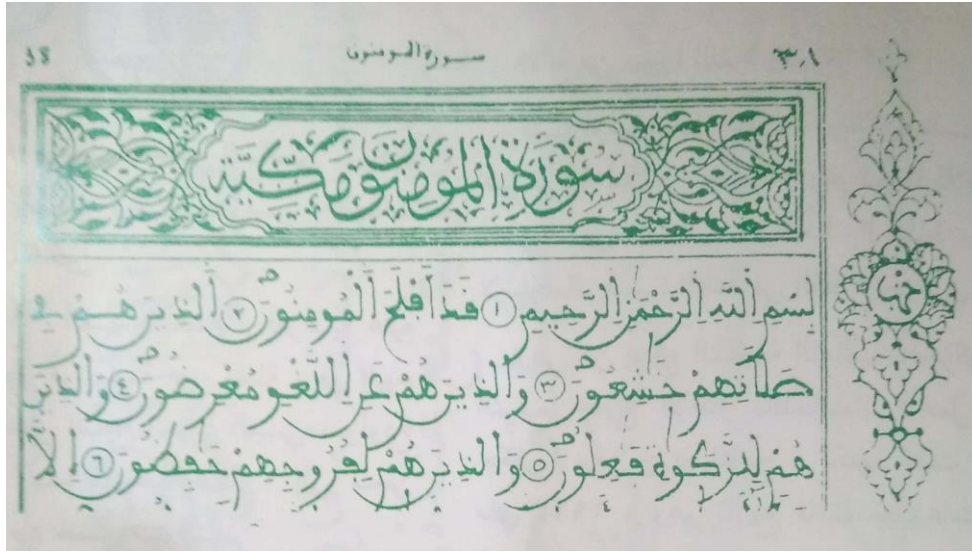 سورة المومنون
سُورَةُ اَلْمُومِنُونَ مَكِّيَّة
بِسْمِ اِللَّهِ اِلرَّحْمَٰنِ اِلرَّحِيمِ ١ قَدَ اَفْلَحَ اَلْمُومِنُونَ ٢ اَلذِينَ هُمْ فِے
صَلَاتِهِمْ خَٰشِعُونَ ٣ وَالذِينَ هُمْ عَنِ اِللَّغْوِ مُعْرِضُونَ ٤ وَالذِينَ
هُمْ لِلزَّكَوٰةِ فَٰعِلُونَ ٥ وَالذِينَ هُمْ لِفُرُوجِهِمْ حَٰفِظُونَ ٦ إِلَّا
حزب